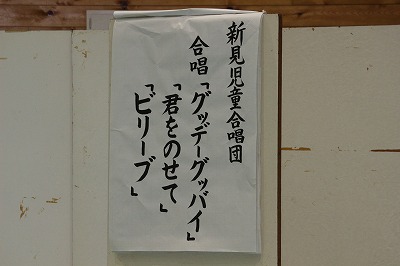 新見児童合唱団
合唱「グッデーグッバイ」
「君をのせて」
「ビリーブ」